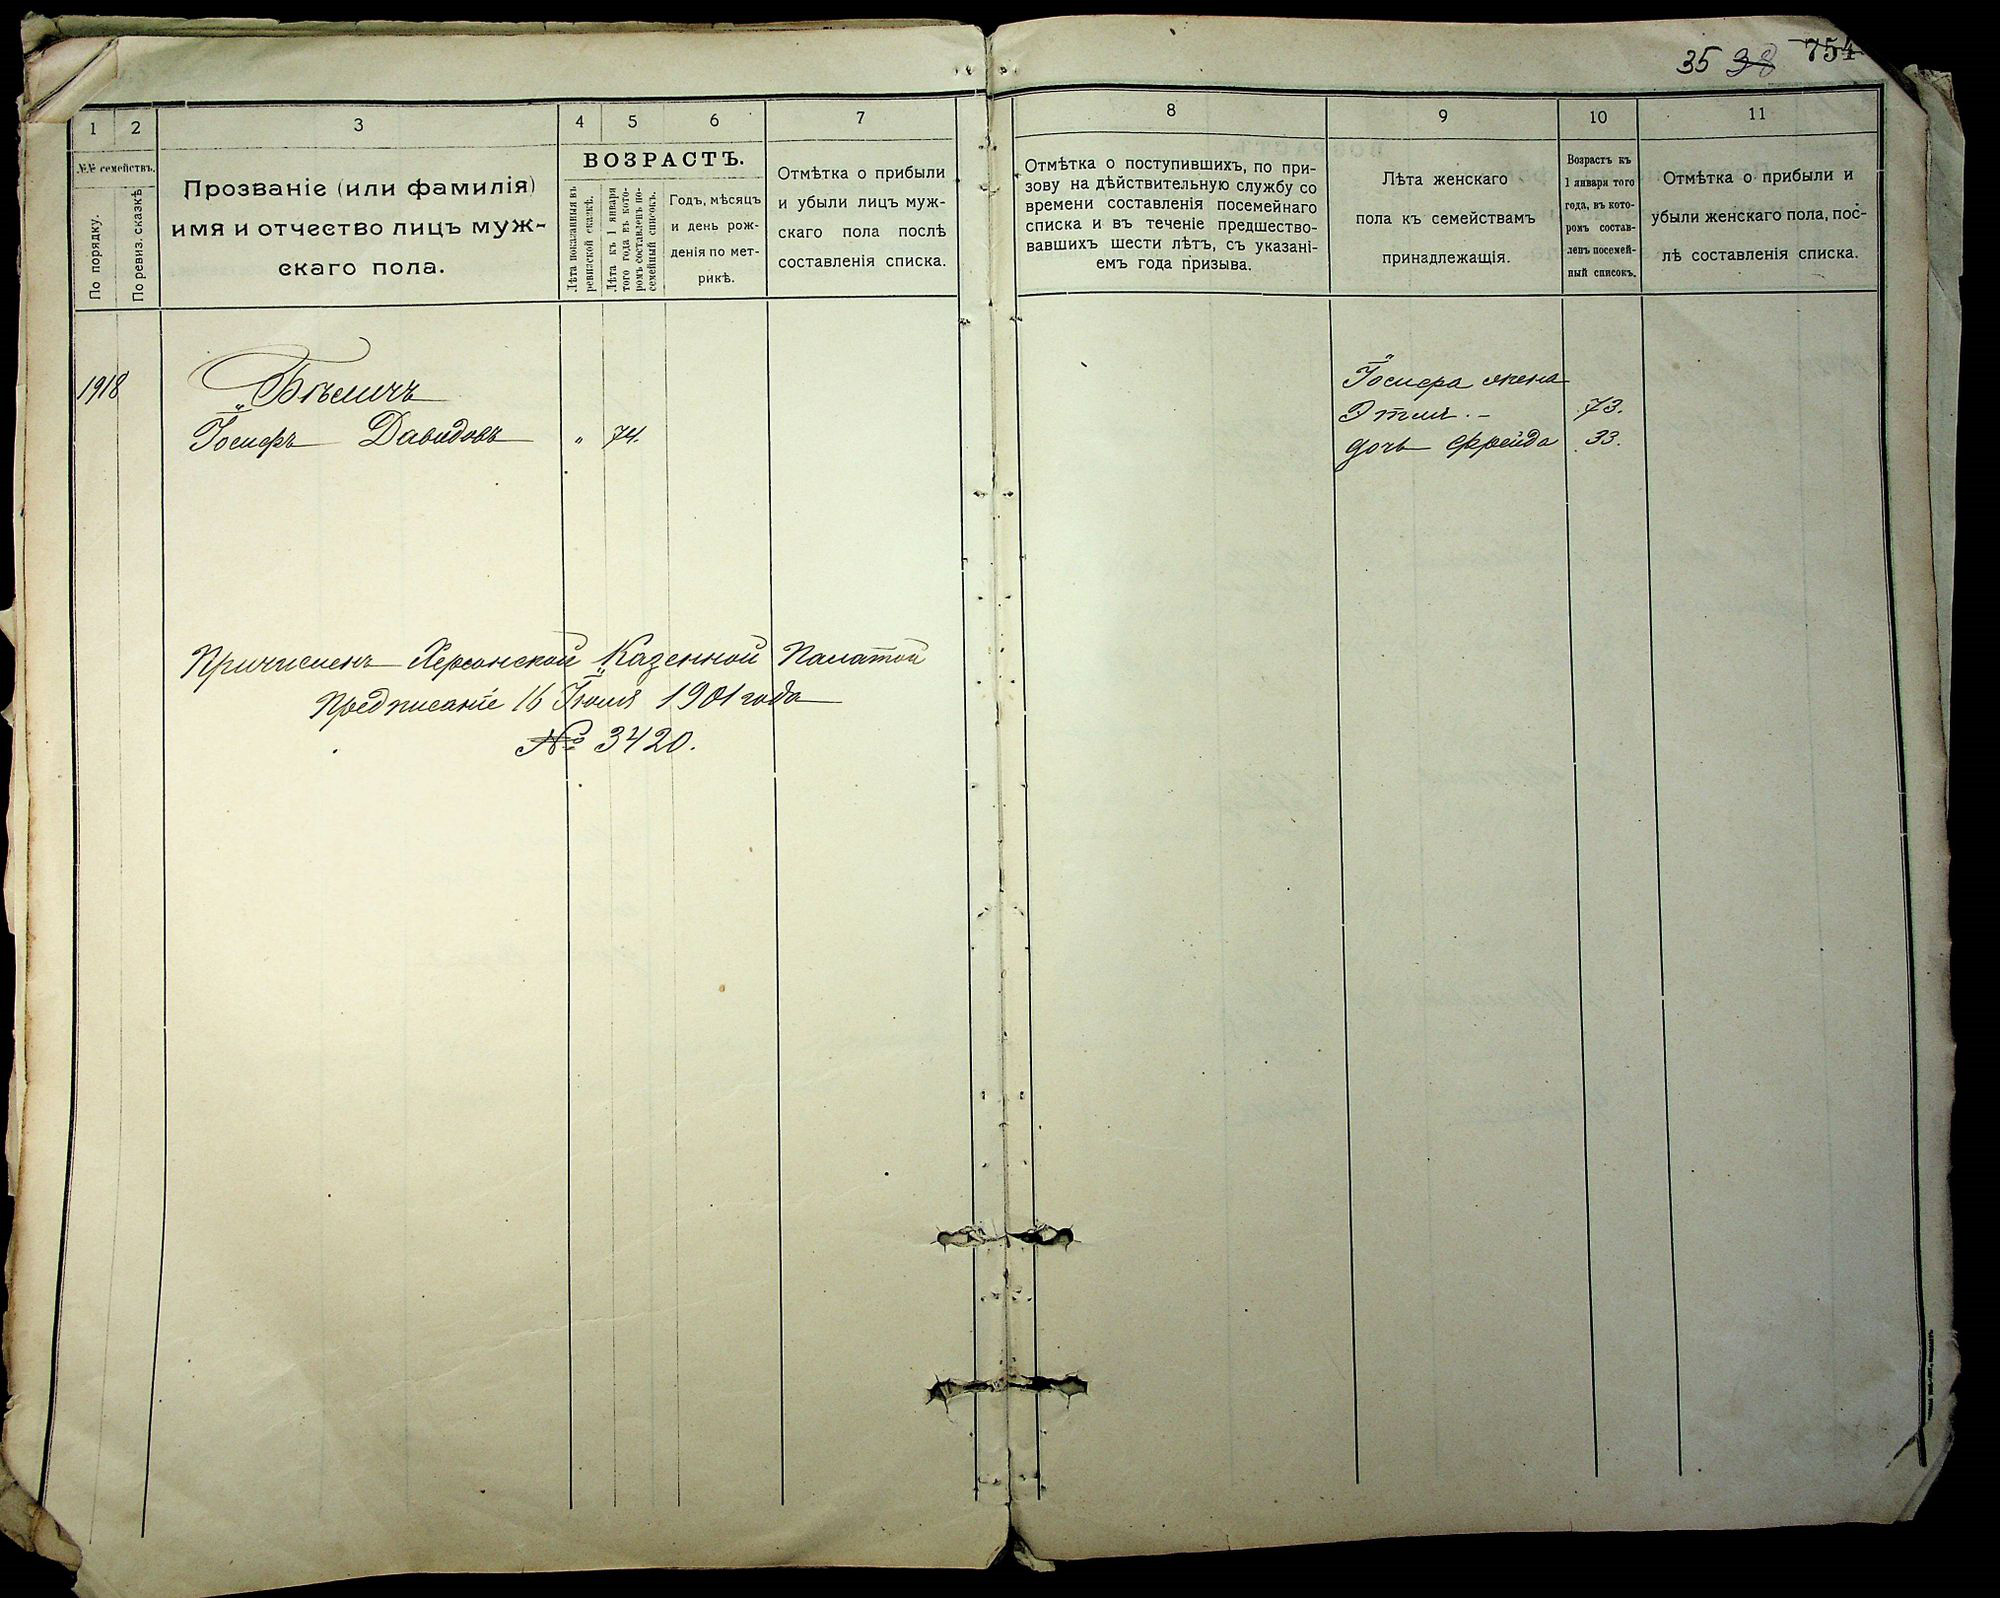 35 38 754
1 2 3 4 5 6 7 8 9 10 11
№№ семействъ.
По порядку.
По ревиз. сказкѣ
Прозваніе (или фамилія)
имя и отчество лицъ муж-
скаго пола.
ВОЗРАСТЪ.
Лѣта показанныя въ
ревизской сказкѣ.
Лѣта къ 1 января
того года въ кото-
ромъ составленъ по-
семейный списокъ.
Годъ, мѣсяцъ
и день рож-
денія по мет-
рикѣ.
Отмѣтка о прибыли
и убыли лицъ муж-
скаго пола послѣ
составленія списка.
Отмѣтка о поступившихъ, по при-
зову на дѣйствительную службу со
времени составленія посемейнаго
списка и въ теченіе предшество-
вавшихъ шести лѣтъ, съ указані-
емъ года призыва.
Лѣта женскаго
пола къ семействамъ
принадлежащія.
Возрастъ къ
1 января того
года, въ кото-
ромъ состав-
ленъ посемей-
ный списокъ.
Отмѣтка о прибыли и
убыли женскаго пола, пос-
лѣ составленія списка.
1918 Бѣличъ
Іосифъ Давидовъ " 74.
Іосифа жена
Этля - 73.
дочь Фрейда 33.
Причисленъ Херсонской Казенной Палатой
Предписаніе 16 Іюля 1901 года
№ 3420.